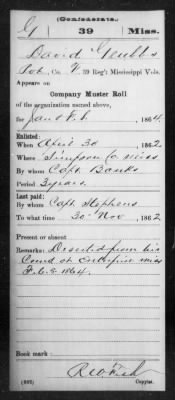 (Confederate.)
G 39 Miss.
David Grubbs
Pvt., Co. G, 39 Reg't Mississippi Vols.
Appears on
Company Muster Roll
of the organization named above,
for Jan & F. , 1864.
Enlisted:
When Apr 30 , 1862
Where Simpson Co. Miss
By whom Capt. Banks
Period 3 years.
Last paid:
By whom Capt. Stephens
To what time 30 Nov , 1862
Present or absent
Remarks: Deserted from his
Comd at Enterprise Miss
Feb. 5 1864.
Book mark:
Copyist.